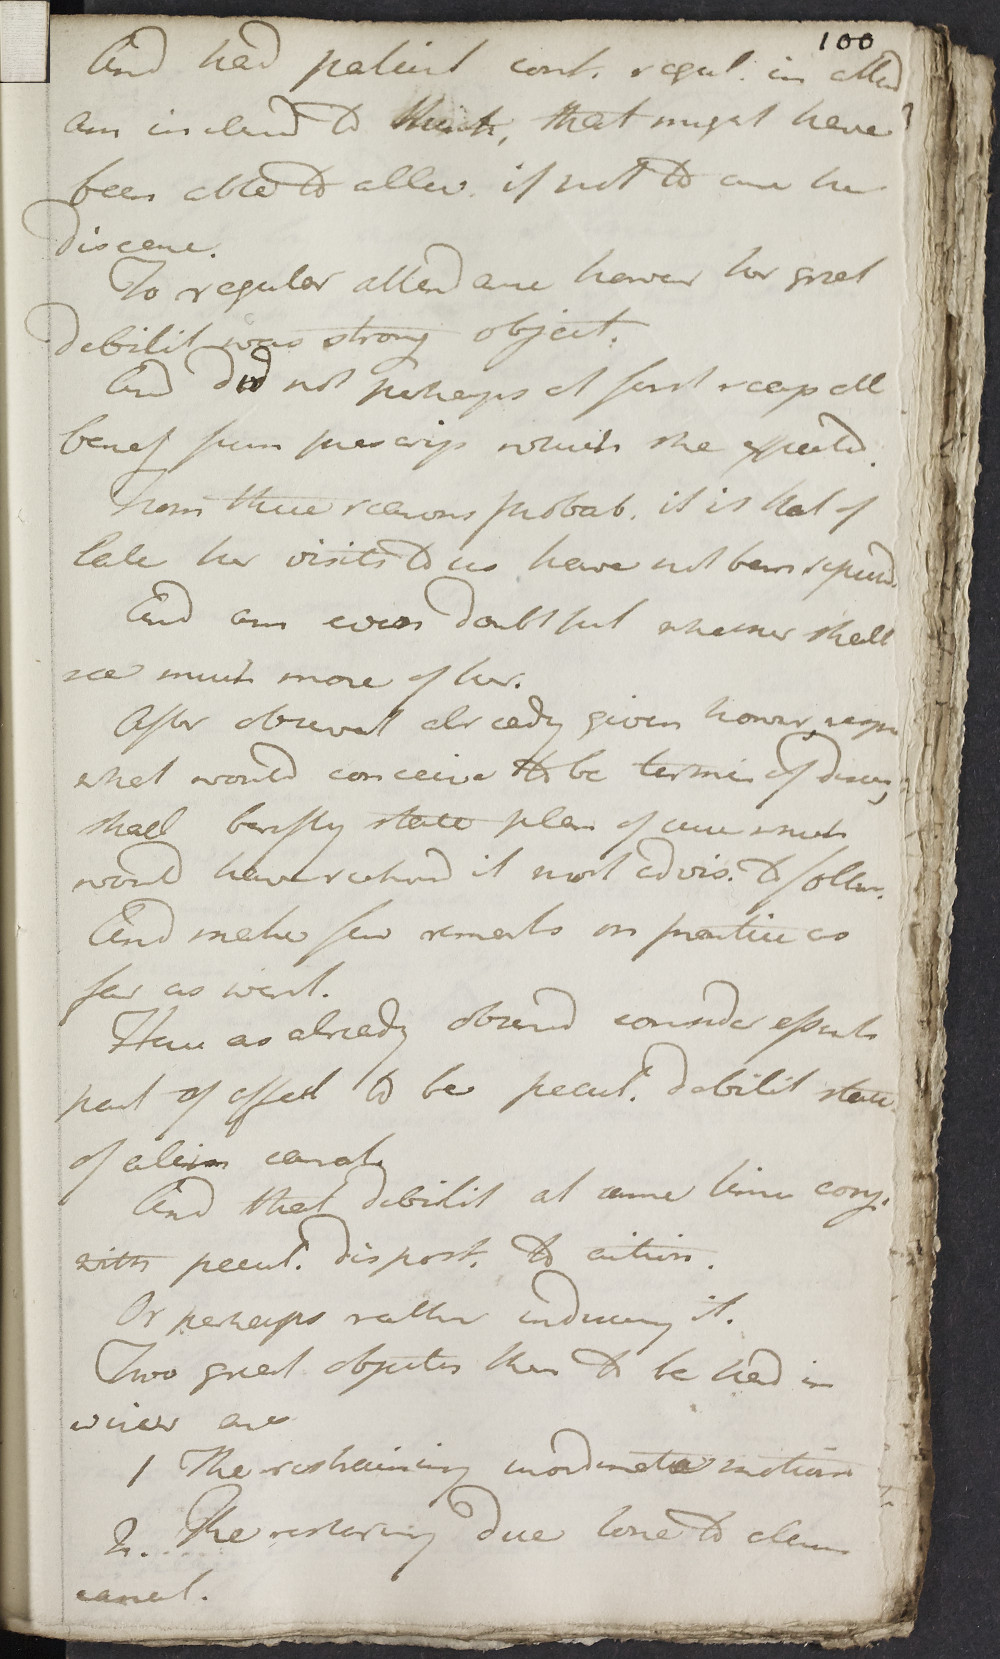 100
And had patient cont. regul. in attend
am inclend to think, that might have
been able to allev. if not to cure her
disease.
To regular attendance however her great
debilit was strong object.
And did not perhaps at first reap all
benef from prescrip which she expected.
From these reasons probab. it is that of
late her visits to us have not been repeated.
And am even doubtful whether shall
see much more of her.
After observat already given however, respe
what would conceive to be termin of disease,
shall briefly state plan of cure which
would have reckond it most advis. to follow.
And make few remarks on practice as
far as went.
Here as already observd consider essential
part of affect to be pecul. debilit state
of alim canal.
And that debilit at same time conj.
with pecul. disposit. to action.
Or perhaps rather inducing it.
Two great objects then to be had in
view are
1 The restraining inordinate motion
2. The restoring due tone to alim
canal.